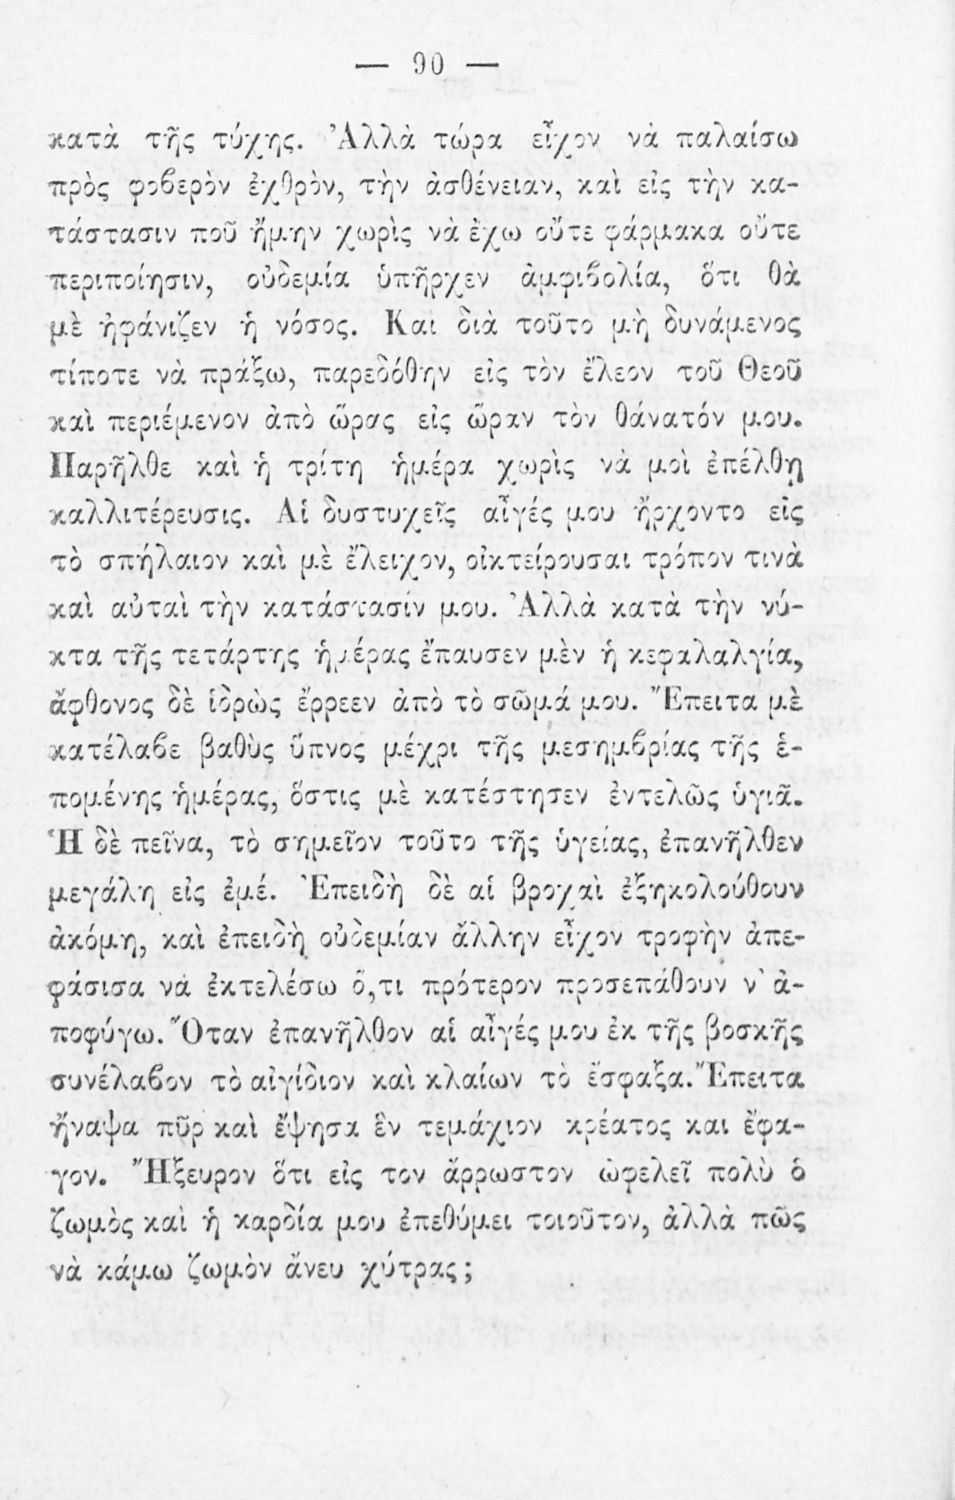 — 90 —
κατὰ τῆς τύχης. Ἀλλὰ τώρα εἶχον νὰ παλαίσω
πρὸς φοβερὸν ἐχθρὸν, τὴν ἀσθένειαν, καὶ εἰς τὴν κα-
τάστασιν ποῦ ἤμην χωρὶς νὰ ἔχω οὔτε φάρμακα οὔτε
περιποίησιν, οὐδεμία ὑπῆρχεν ἀμφιβολία, ὅτι θὰ
μὲ ἠφάνιζεν ἡ νόσος. Καὶ διὰ τοῦτο μὴ δυνάμενος
τίποτε νὰ πράξω, παρεδόθην εἰς τὸν ἔλεον τοῦ Θεοῦ
καὶ περιέμενον ἀπὸ ὥρας εἰς ὥραν τὸν θάνατόν μου.
Παρῆλθε καὶ ἡ τρίτη ἡμέρα χωρὶς νὰ μοὶ ἐπέλθῃ
καλλιτέρευσις. Αἱ δυστυχεῖς αἶγές μου ἤρχοντο εἰς
τὸ σπήλαιον καὶ μὲ ἔλειχον, οἰκτείρουσαι τρόπον τινὰ
καὶ αὐταὶ τὴν κατάστασίν μου. Ἀλλὰ κατὰ τὴν νύ-
κτα τῆς τετάρτης ἡμέρας ἔπαυσεν μὲν ἡ κεφαλαλγία,
ἄφθονος δὲ ἱδρὼς ἔρρεεν ἀπὸ τὸ σῶμά μου. Ἔπειτα μὲ
κατέλαβε βαθὺς ὕπνος μέχρι τῆς μεσημβρίας τῆς ἑ-
πομένης ἡμέρας, ὅστις μὲ κατέστησεν ἐντελῶς ὑγιᾶ.
Ἡ δὲ πεῖνα, τὸ σημεῖον τοῦτο τῆς ὑγείας, ἐπανῆλθεν
μεγάλη εἰς ἐμέ. Ἐπειδὴ δὲ αἱ βροχαὶ ἐξηκολούθουν
ἀκόμη, καὶ ἐπειδὴ οὐδεμίαν ἄλλην εἶχον τροφὴν ἀπε-
φάσισα νὰ ἐκτελέσω ὅ,τι πρότερον προσεπάθουν ν' ἀ-
ποφύγω. Ὅταν ἐπανῆλθον αἱ αἶγές μου ἐκ τῆς βοσκῆς
συνέλαβον τὸ αἰγίδιον καὶ κλαίων τὸ ἔσφαξα. Ἔπειτα
ἤναψα πῦρ καὶ ἔψησα ἓν τεμάχιον κρέατος καὶ ἔφα-
γον. Ἤξευρον ὅτι εἰς τὸν ἄρρωστον ὠφελεῖ πολὺ ὁ
ζωμὸς καὶ ἡ καρδία μου ἐπεθύμει τοιοῦτον, ἀλλὰ πῶς
νὰ κάμω ζωμὸν ἄνευ χύτρας;